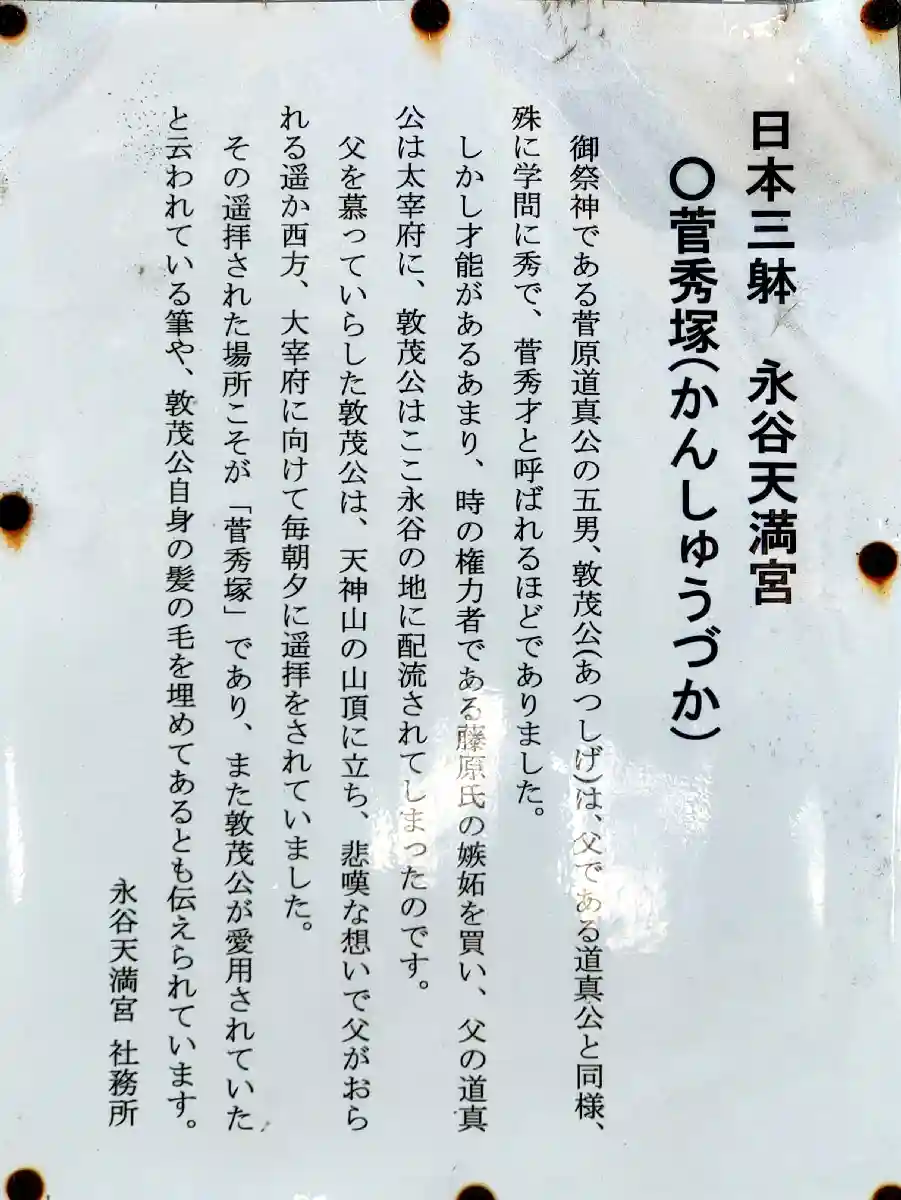 日本三躰　永谷天満宮
〇菅秀塚(かんしゅうづか)
御祭神である菅原道真公の五男、敦茂公(あつしげ)は、父である道真公と同様、
殊に学問に秀で、菅秀才と呼ばれるほどでありました。
しかし才能があるあまり、時の権力者である藤原氏の嫉妬を買い、父の道真
公は太宰府に、敦茂公はここ永谷の地に配流されてしまったのです。
父を慕っていらした敦茂公は、天神山の山頂に立ち、悲嘆な想いで父がおら
れる遥か西方、大宰府に向けて毎朝夕に遥拝をされていました。
その遥拝された場所こそが「菅秀塚」であり、また敦茂公が愛用されていた
と云われている筆や、敦茂公自身の髪の毛を埋めてあるとも伝えられています。
永谷天満宮 社務所